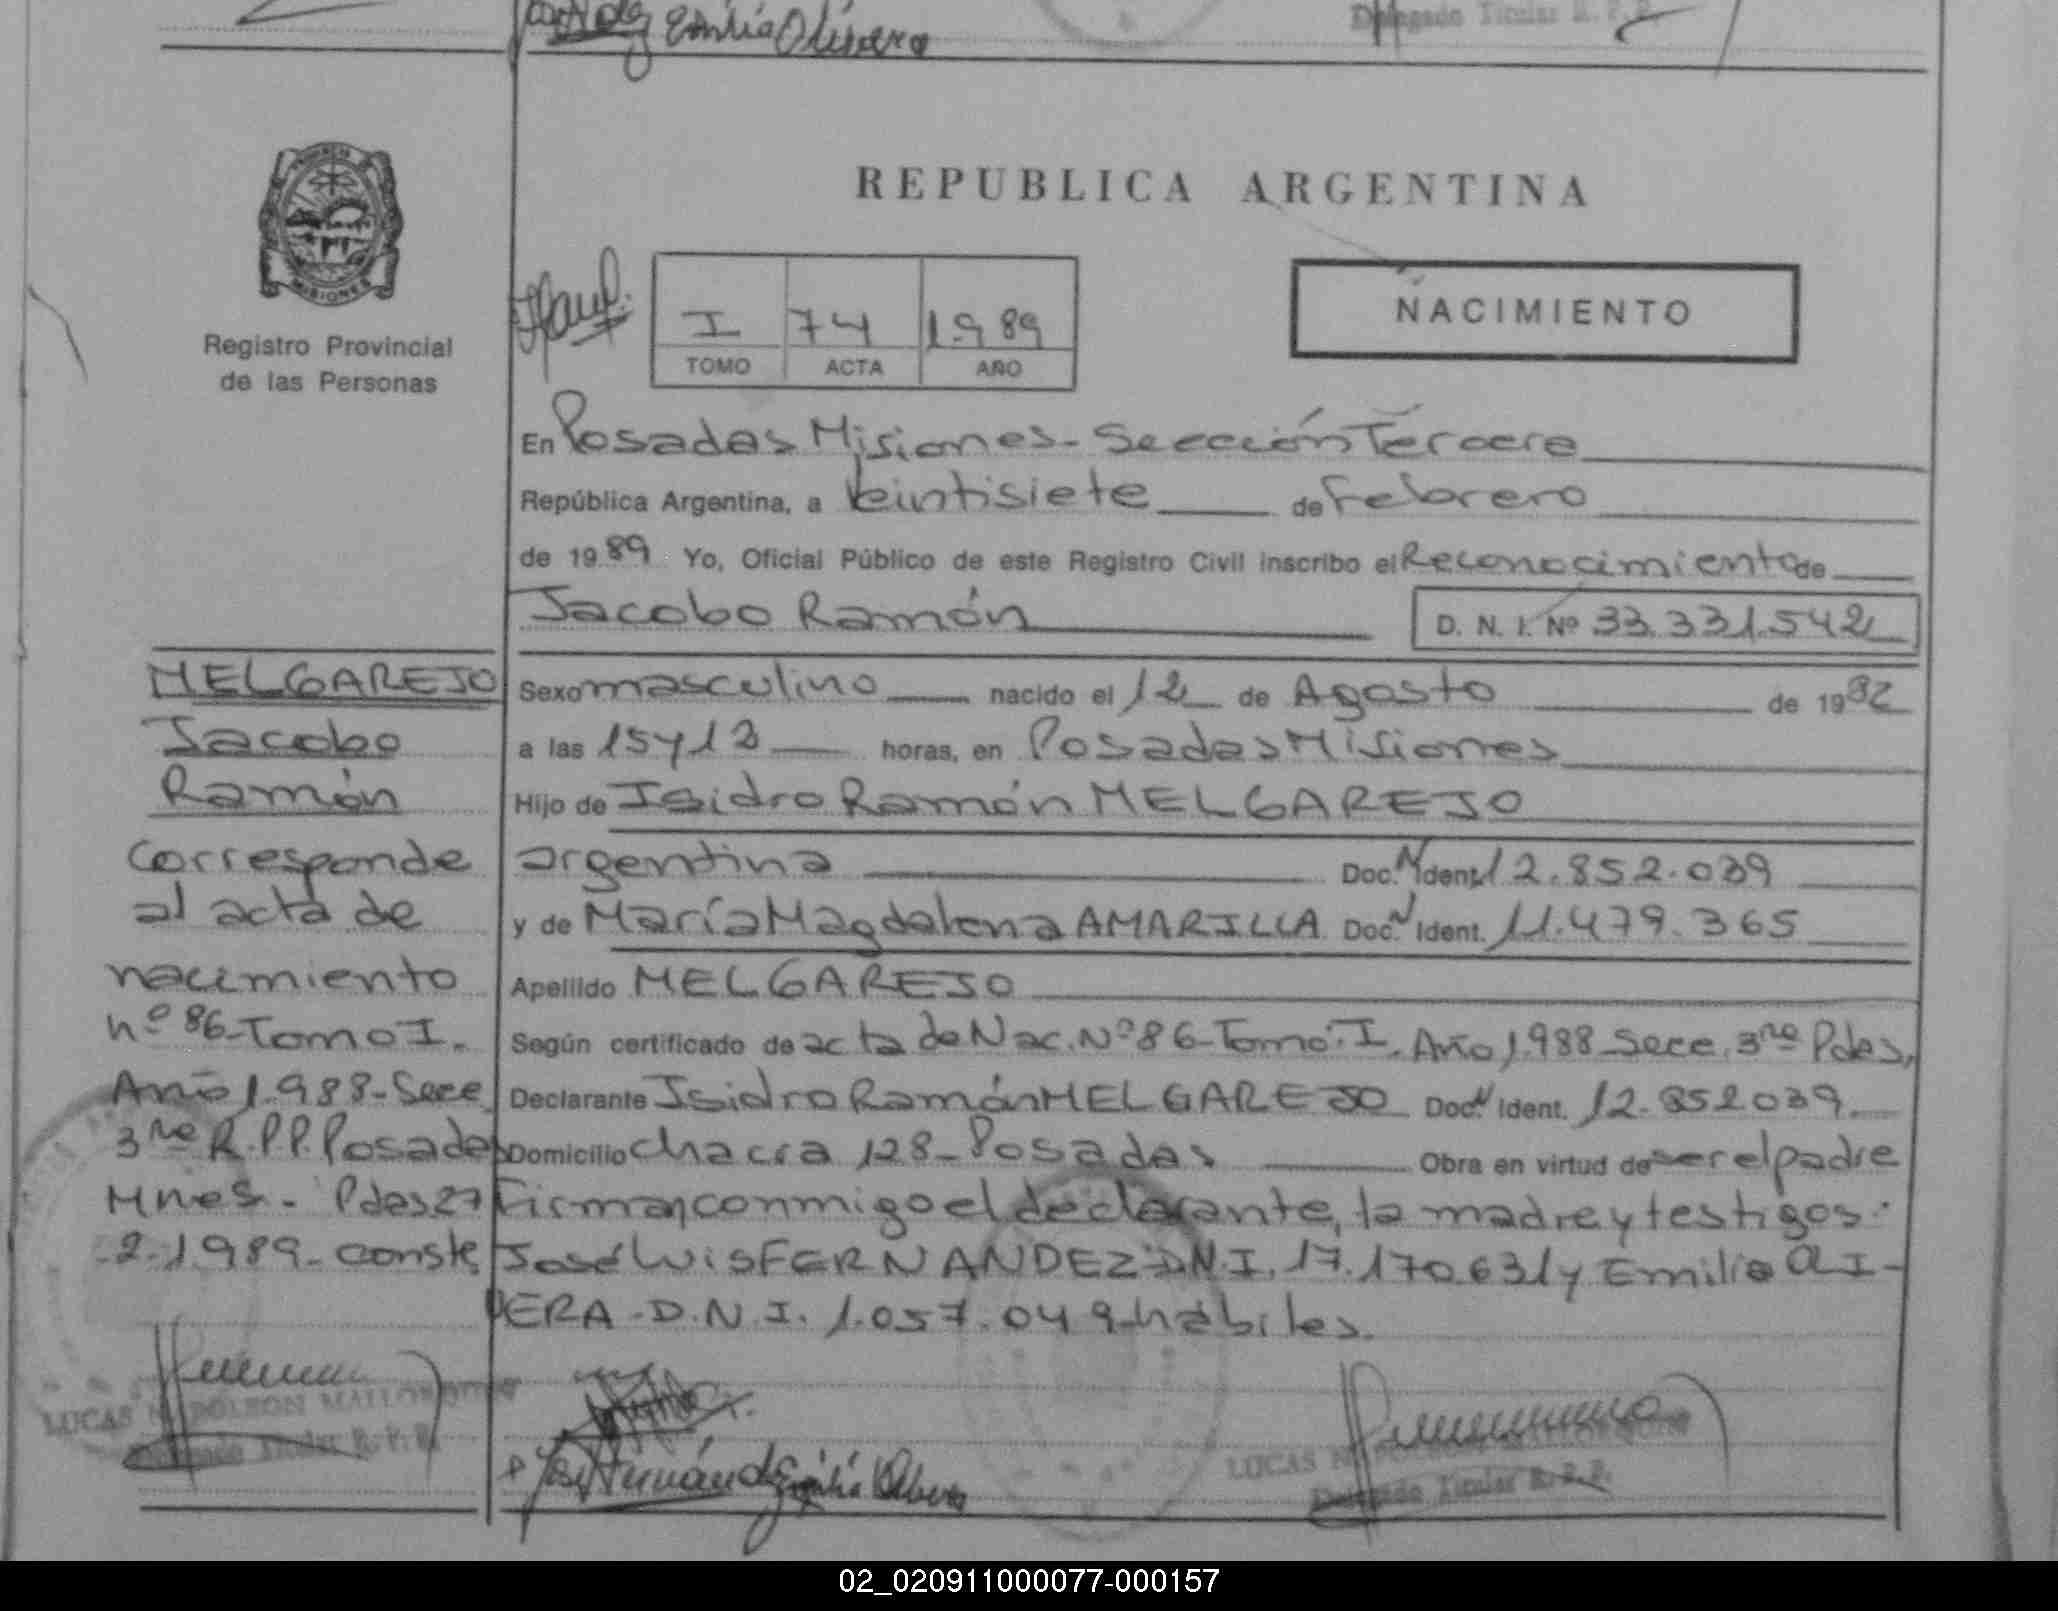 Emilia Olivera
Delegado Titular R. P. P.
PROVINCIA
MISIONES
Registro Provincial
de las Personas
REPUBLICA ARGENTINA
I 74 1989
TOMO ACTA AÑO
NACIMIENTO
En Posadas Misiones - Sección Tercera
República Argentina, a Veintisiete de Febrero
de 1989 Yo, Oficial Público de este Registro Civil inscribo el Reconocimiento de
Jacobo Ramón D. N. I. Nº 33.331.542
Sexo masculino nacido el 12 de Agosto de 19
a las 15 y 13 horas, en Posadas Misiones
Hijo de Isidro Ramón MELGAREJO
argentina Doc. N Ident. 12.852.039
y de María Magdalena AMARILLA Doc. N Ident. 11.479.365
Apellido MELGAREJO
Según certificado de acta de Nac. Nº 86 - Tomo: I. Año 1.988 Secc. 3ra Pdas,
Declarante Isidro Ramón MELGAREJO Doc. N Ident. 12.852039
Domicilio Chacra 128 - Posadas Obra en virtud de ser el padre
Firman conmigo el declarante, la madre y testigos:
José Luis FERNANDEZ D.N.I. 17.170631 y Emilia OLI-
VERA - D.N.I. 1.057.049 hábiles.
MELGAREJO
Jacobo
Ramón
Corresponde
al acta de
nacimiento
nº 86 - Tomo I.
Año 1.988 - Secc
3ra R.P.P. Posadas
Mnes. - Pdas 27
-2-1.989 - conste
LUCAS NAPOLEON
Delegado Titular R. P. P.
José Fernández Emilia Olivera
LUCAS
Delegado Titular R. P. P.
02_020911000077-000157